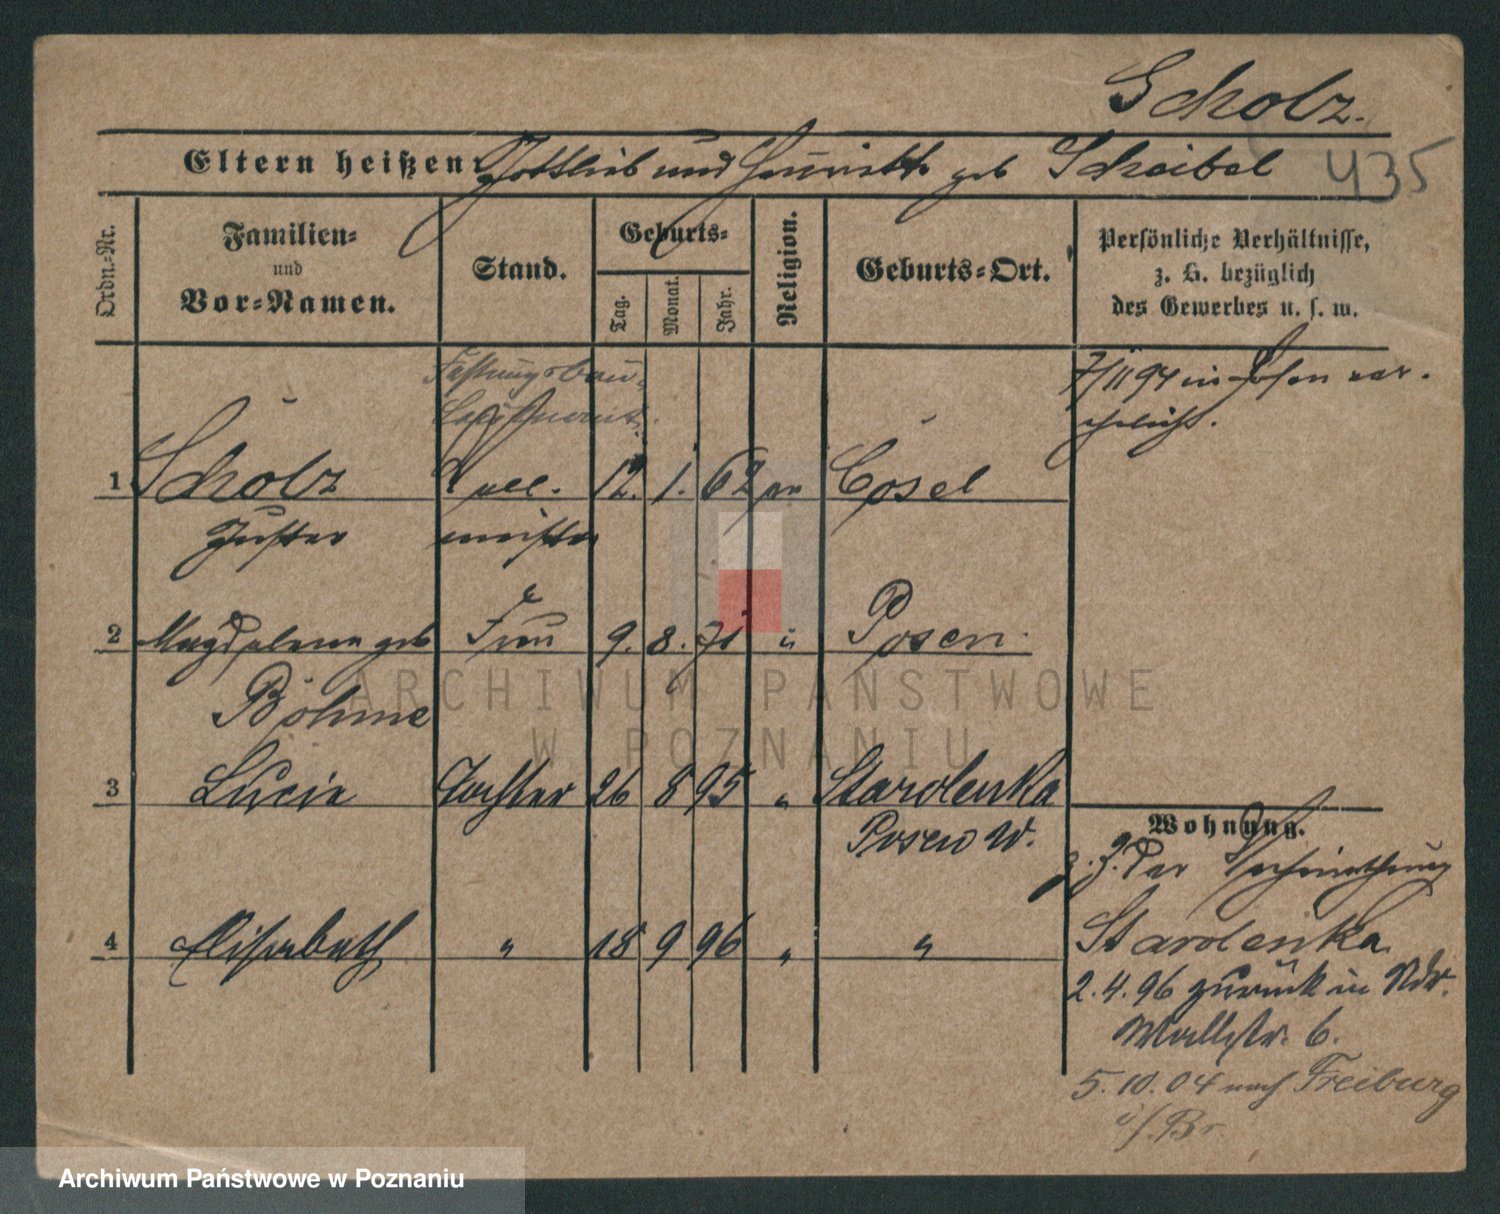 Scholz.
Eltern heißen: Gottlieb und Henriette geb Scheibel
435
Ordn.-Nr.
Familien- und Vor-Namen.
Stand.
Geburts-
Tag.
Monat.
Jahr.
Religion.
Geburts-Ort.
Persönliche Verhältnisse,
z. B. bezüglich
des Gewerbes u. s. w.
Festungsbau-
Leutnant.
7/11 94 in Posen ver-
ehelicht.
1 Scholz Wall- 12. 1. 62 ev Cosel
Gustav meister
2 Magdalena geb Frau 9. 8. 71 " Posen
Böhme
3 Lucie Tochter 26 8 95 " Starolenka
Posen W.
4 Elisabeth " 18 9 96 " "
Wohnung.
z. Z. der Verheirathung
Starolenka
2.4.96 zurück in Ndr.
Wallstr. 6.
5.10.04 nach Freiburg
i/Br
ARCHIWUM PAŃSTWOWE
W POZNANIU
Archiwum Państwowe w Poznaniu